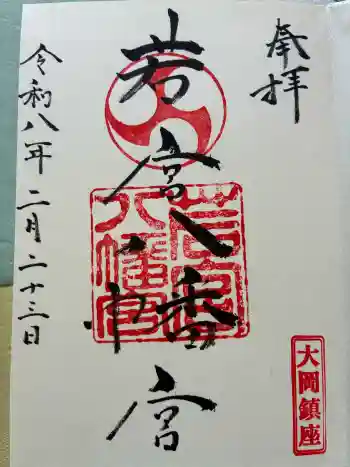 奉拝
若宮八幡宮
若宮八幡宮
大岡鎮座
令和八年二月二十三日